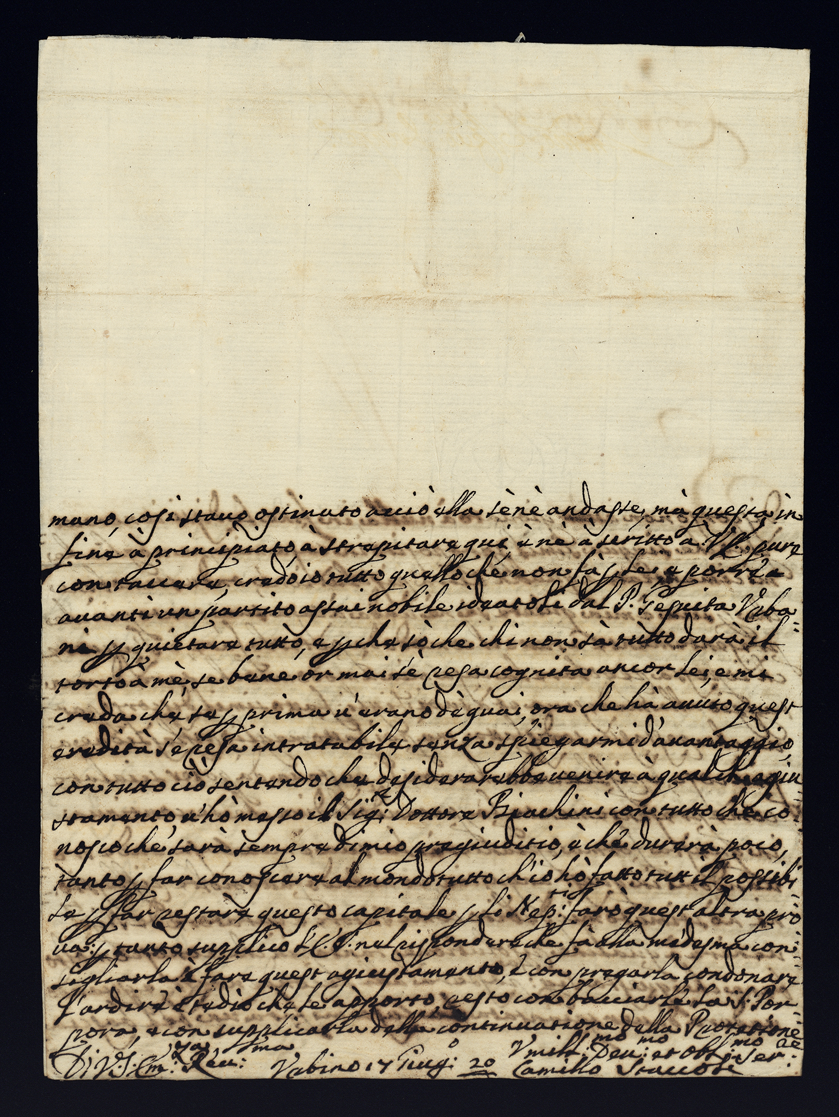 mano, così stavo ostinato acciò ella sè nè andasse, mà questa in
fine à principiato à strepitare qui, e nè à scritto a V.E. pure
con tacere, credo io tutto quello che non fà p lei, e porrà
avanti un partito assai nobile ideatoli dal P. Gesuita Vrba
ni p quietare tutto, e p che sò che chi non sà tutto darà il
torto à mè, se bene or mai s'è resa cognita ancor lei, e mi
creda che, se p prima v'erano dè guai, ora che hà avuto quest
eredità s'è resa intratabile senza spiegarmi d'avantaggio,
con tutto ciò sentendo che desiderarebbe venire à qualche agiu
stamento v'hò messo il Sig: Dottore Biachini con tutto che co:
nosco che sarà sempre di mio pregiuditio, e che durerà poco,
tanto p far conoscere al mondo tutto ch'io hò fatto tutto il possibi
le p far restare questo capitale p li Nep:ti farò quest'altra pro
va; p tanto supplico l'E.V. nel rispondere che fà alla medesma con
sigliarla à fare quest agiustamento, e con pregarla condonare
l'ardire e tedio che le apporto, resto con bacciarle la S: Por:
pora, e con supplicarla della continuatione della Protetione
Di V: S: Em:za Reu:ma Vrbino 17 Giug:o 20 Vmill:mo Deu:mo et Obl:mo Ser:re
Camillo Staccoli